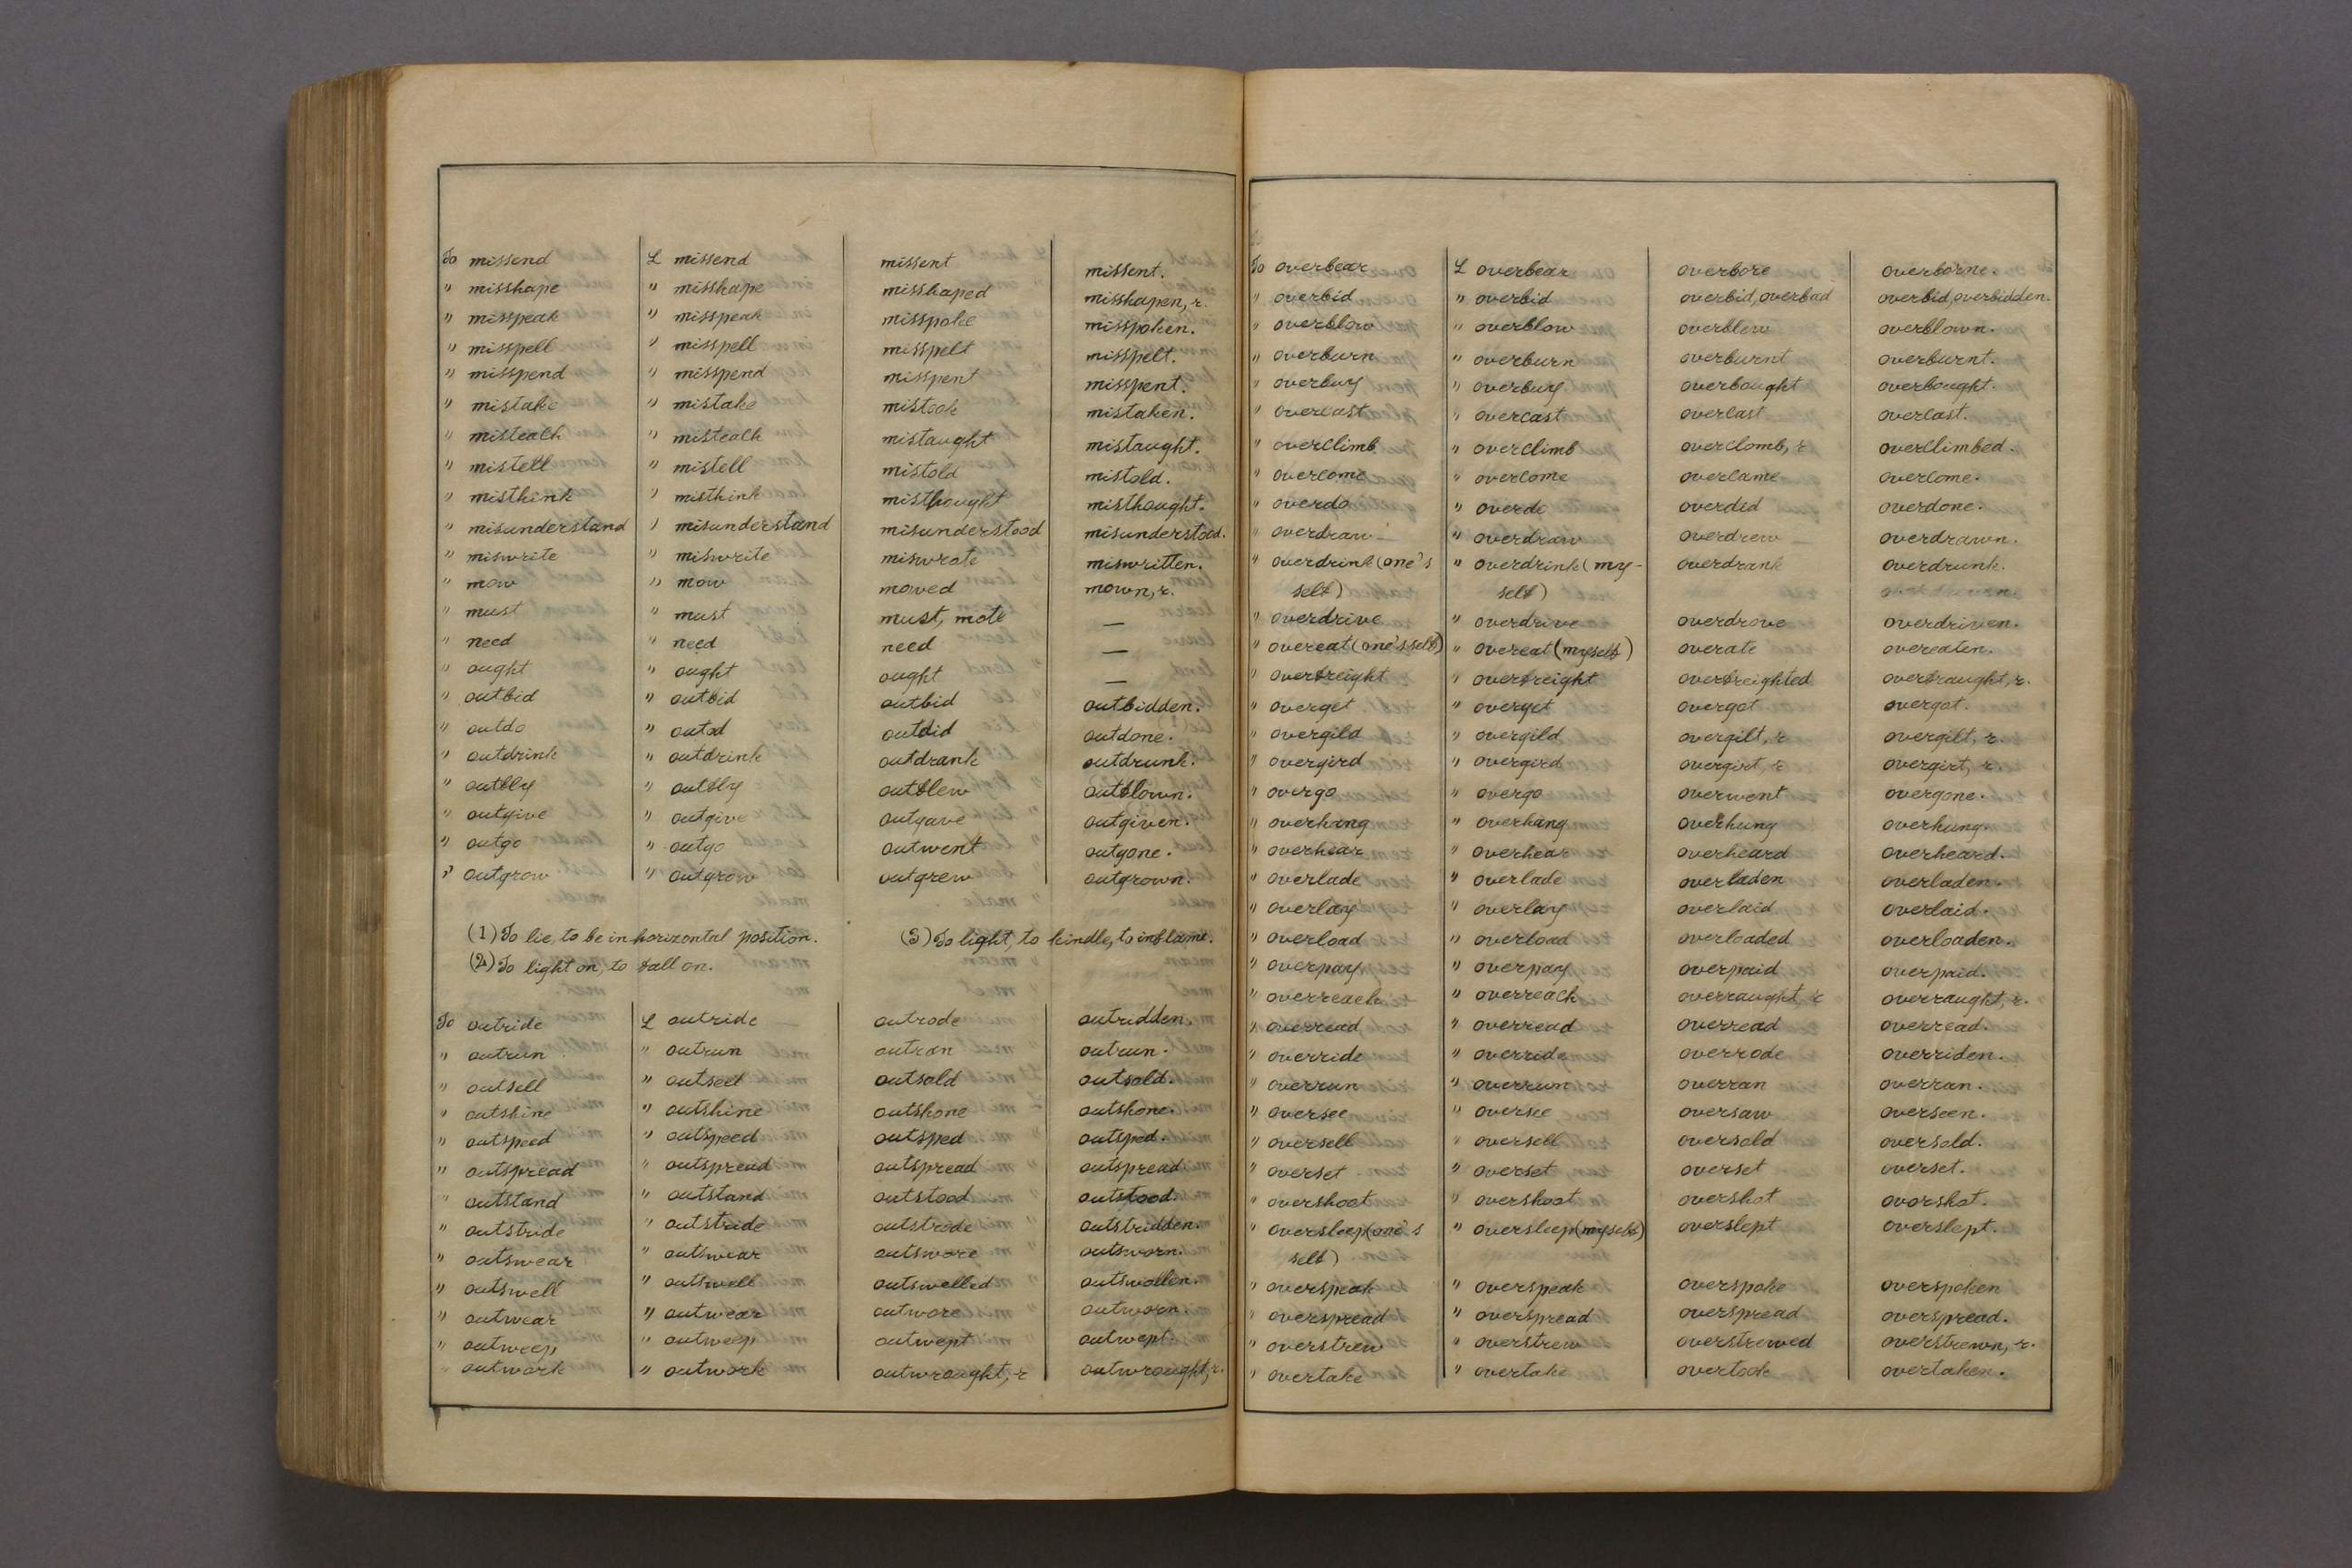 To missend I missend missent missent.
" misshape " misshape misshaped misshapen, r.
" misspeak " misspeak misspoke misspoken.
" misspell " misspell misspelt misspelt.
" misspend " misspend misspent misspent.
" mistake " mistake mistook mistaken.
" misteach " misteach mistaught mistaught.
" mistell " mistell mistold mistold.
" misthink " misthink misthought misthought.
" misunderstand " misunderstand misunderstood misunderstood.
" miswrite " miswrite miswrote miswritten.
" mow " mow mowed mown, r.
" must " must must, mote —
" need " need need —
" ought " ought ought —
" outbid " outbid outbid outbidden.
" outdo " outod outdid outdone.
" outdrink " outdrink outdrank outdrunk.
" outfly " outfly outflew outflown.
" outgive " outgive outgave outgiven.
" outgo " outgo outwent outgone.
" outgrow " outgrow outgrew outgrown.
(1) To lie, to be in horizontal position. (3) To light, to kindle, to inflame.
(2) To light on, to fall on.
To outride I outride outrode outridden.
" outrun " outrun outran outrun.
" outsell " outsell outsold outsold.
" outshine " outshine outshone outshone.
" outspeed " outspeed outsped outsped.
" outspread " outspread outspread outspread.
" outstand " outstand outstood outstood.
" outstride " outstride outstrode outstridden.
" outswear " outswear outswore outsworn.
" outswell " outswell outswelled outswollen.
" outwear " outwear outwore outworn.
" outweep " outweep outwept outwept.
" outwork " outwork outwrought, r outwrought, r.
To overbear I overbear overbore overborne.
" overbid " overbid overbid, overbad overbid, overbidden.
" overblow " overblow overblew overblown.
" overburn " overburn overburnt overburnt.
" overbuy " overbuy overbought overbought.
" overcast " overcast overcast overcast.
" overclimb " overclimb overclomb, r overclimbed.
" overcome " overcome overcame overcome.
" overdo " overdo overdid overdone.
" overdraw " overdraw overdrew overdrawn.
" overdrink (one's " overdrink (my- overdrank overdrunk.
self) self)
" overdrive " overdrive overdrove overdriven.
" overeat (one's self) " overeat (myself) overate overeaten.
" overfreight " overfreight overfreighted overfraught, r.
" overget " overget overgot overgot.
" overgild " overgild overgilt, r overgilt, r.
" overgird " overgird overgirt, r overgirt, r.
" overgo " overgo overwent overgone.
" overhang " overhang overhung overhung.
" overhear " overhear overheard overheard.
" overlade " overlade overladen overladen.
" overlay " overlay overlaid overlaid.
" overload " overload overloaded overloaden.
" overpay " overpay overpaid overpaid.
" overreach " overreach overraught, r overraught, r.
" overread " overread overread overread.
" override " override overrode overriden.
" overrun " overrun overran overran.
" oversee " oversee oversaw overseen.
" oversell " oversell oversold oversold.
" overset " overset overset overset.
" overshoot " overshoot overshot overshot.
" oversleep (one's " oversleep (myself) overslept overslept.
self)
" overspeak " overspeak overspoke overspoken
" overspread " overspread overspread overspread.
" overstrew " overstrew overstrewed overstrewn, r.
" overtake " overtake overtook overtaken.